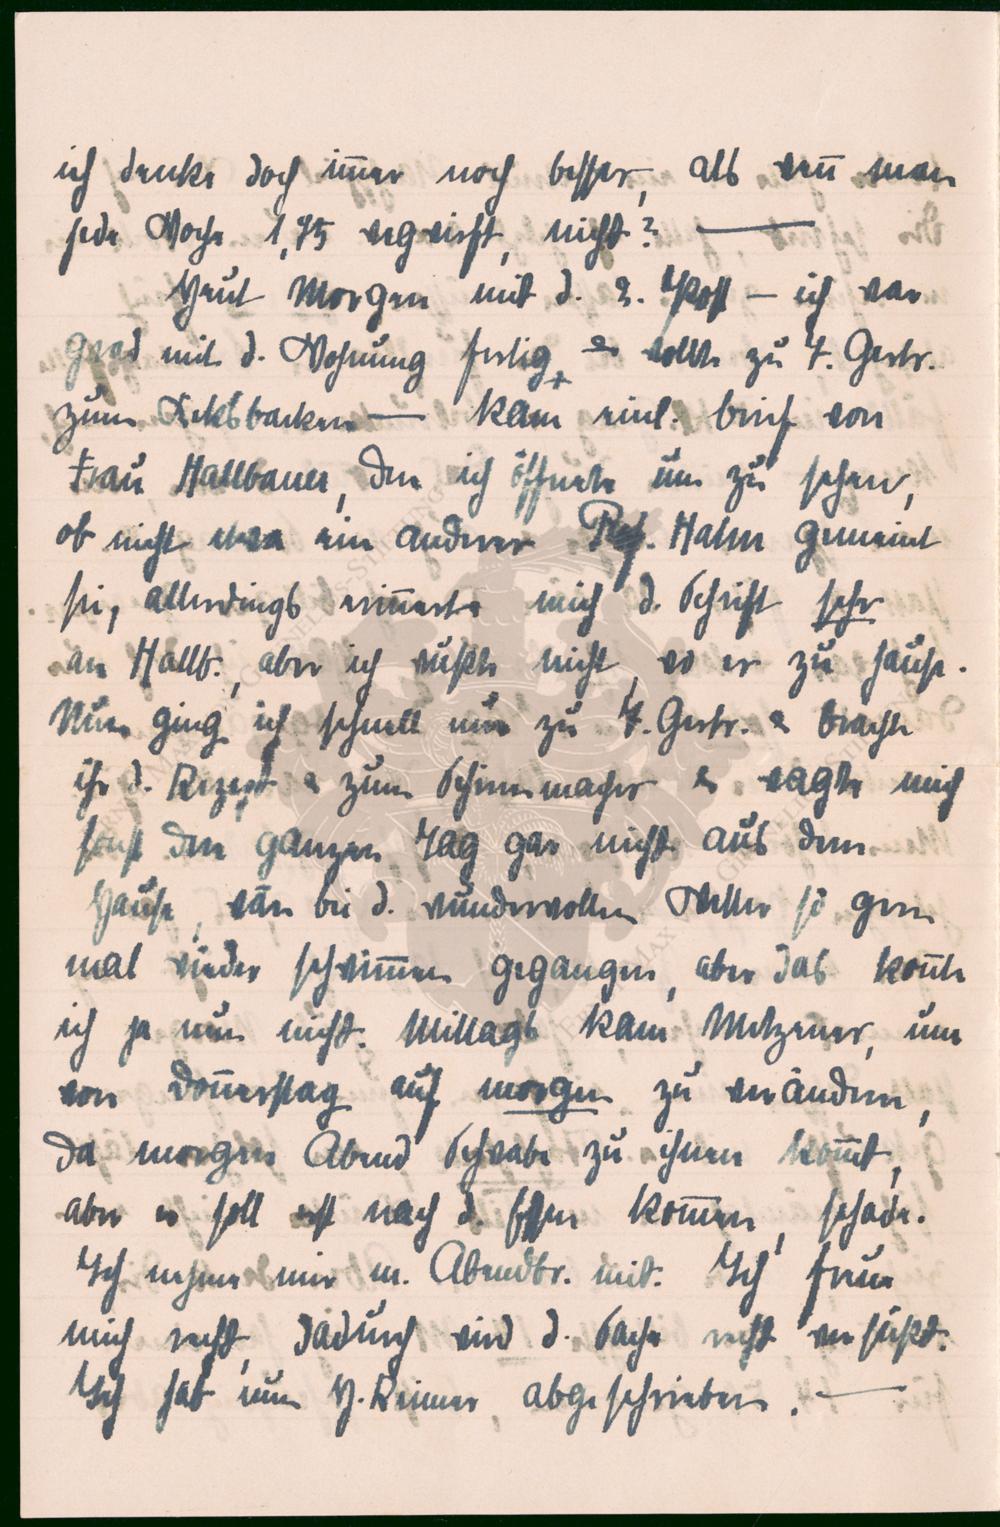 ich denke doch im̄er noch besser, als wen̄ man
jede Woche 1,75 wegwirft, nicht? —
Heut Morgen mit d. 2. Post — ich war
grad mit d. Wohnung fertig, & wollte zu T. Gertr.
zum Keksbacken — kam einl. brief von
Frau Hallbauer, den ich öffnete um zu sehen,
ob nicht etwa ein anderer Prof. Hahn gemeint
sei, allerdings erin̄erte mich d. Schrift sehr
an Hallb., aber ich wußte nicht, wo er zu hause.
Nun ging ich schnell nur zu T. Gertr. & brachte
ihr d. Rezept & zum Schirmmacher & wagte mich
sonst den ganzen Tag gar nicht aus dem
Hause, wär bei d. wundervollen Wetter so gern
mal wieder schwim̄en gegangen, aber das kon̄te
ich ja nun nicht. Mittags kam Metzener, um
von Don̄erstag auf morgen zu verändern,
da morgen Abend Schwabe zu ihnen kom̄t,
aber er soll erst nach d. Essen kom̄en, schade.
Ich nehme mir m. Abendbr. mit. Ich freue
mich recht, dadurch wird d. Sache recht versüßt.
Ich hab nun H. Reimer abgeschrieben. —